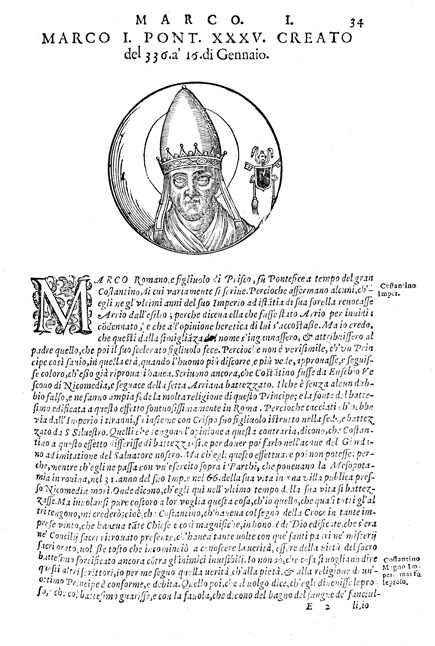 MARCO. I. 34
MARCO I. PONT. XXXV. CREATO
del 336. a' 16. di Gennaio.
MARCO Romano, e figliuolo di Prisco, fù Pontefice a tempo del gran
Costantino, di cui variamente si scriue. Percioche affermano alcuni, ch'
egli ne gl'vltimi anni del suo Imperio ad istātia di sua sorella reuocasse
Arrio dall'esilio; perche diceua ella che fusse stato Arrio per inuidia
cōdennato, e che all'opinione heretica di lui s'accostasse. Ma io credo,
che questi dalla simigliāza del nome s'ingannassero, & attribuissero al
padre quello, che poi il suo scelerato figliuolo fece. Percioche non è verisimile, ch'un Prin
cipe così sauio, in quella età, quando l'huomo più discorre, e più vale, approuasse, e seguis-
se coloro, ch'esso già riprouati haueua. Scriuono ancora, che Costātino fusse da Eusebio Ve
scouo di Nicomedia, e seguace della setta Arriana battezzato. Il che è senza alcun dub-
bio falso, e ne fanno ampia fede la molta religione di questo Principe; e la fonte del batte-
simo edificata a questo effetto sontuosissimamente in Roma. Percioche cacciati ch'hebbe
via dall'Imperio i tiranni, fù insieme con Crispo suo figliuolo istrutto nella fede, e battez-
zato da S. Siluestro. Quelli che tengono l'opinione a questa contraria, dicono, che Costan-
tino a questo effetto differisse di battezzarsi, per douer poi farlo nell'acque del Giorda-
no ad imitatione del Saluatore nostro. Ma ch'egli questo effettuare poi non potesse: per-
che, mentre ch'egli ne passa con vn'esercito sopra i Parthi, che poneuano la Mesopota-
mia in rouina, nel 31. anno del suo Imp. e nel 66. della sua vita in vna villa publica pres-
so Nicomedia morì. Onde dicono, ch'egli quì nell'vltimo tempo della sua vita si battez-
zasse. Ma insolansi pure costoro a lor voglia questa cosa, ch'io quello, che quasi tutti gl'al
tri tengono, mi crederò; cioè, che Costantino, ch'haueua col segno della Croce in tante im-
prese vinto, che haueua tāte Chiese e così magnifiche, in honore di Dio edificate, che s'era
ne' Concilij sacri ritrouato presente, e c'haueua tante volte con que' santi padri ne' misterij
sacri orato, volesse tosto che incominciò a conoscere la verità, essere della virtù del sacro
battesimo fortificato ancora cōtra gl'inimici inuisibili. Io non sò, che cosa si vogliano dire
questi altri scrittori, io per me seguo quella verità, ch'alla pietà, & alla religione di un'
ottimo Principe è conforme, e debita. Quello poi, che il volgo dice, ch'egli diuenisse lepro-
so, e che col battesimo guarisse, e con la fauola, che dicono del bagno del sangue de' fanciul-
E 2 li, io
Costantino
Imper.
Costantino
Magno Im
per. mai fu
leproso.